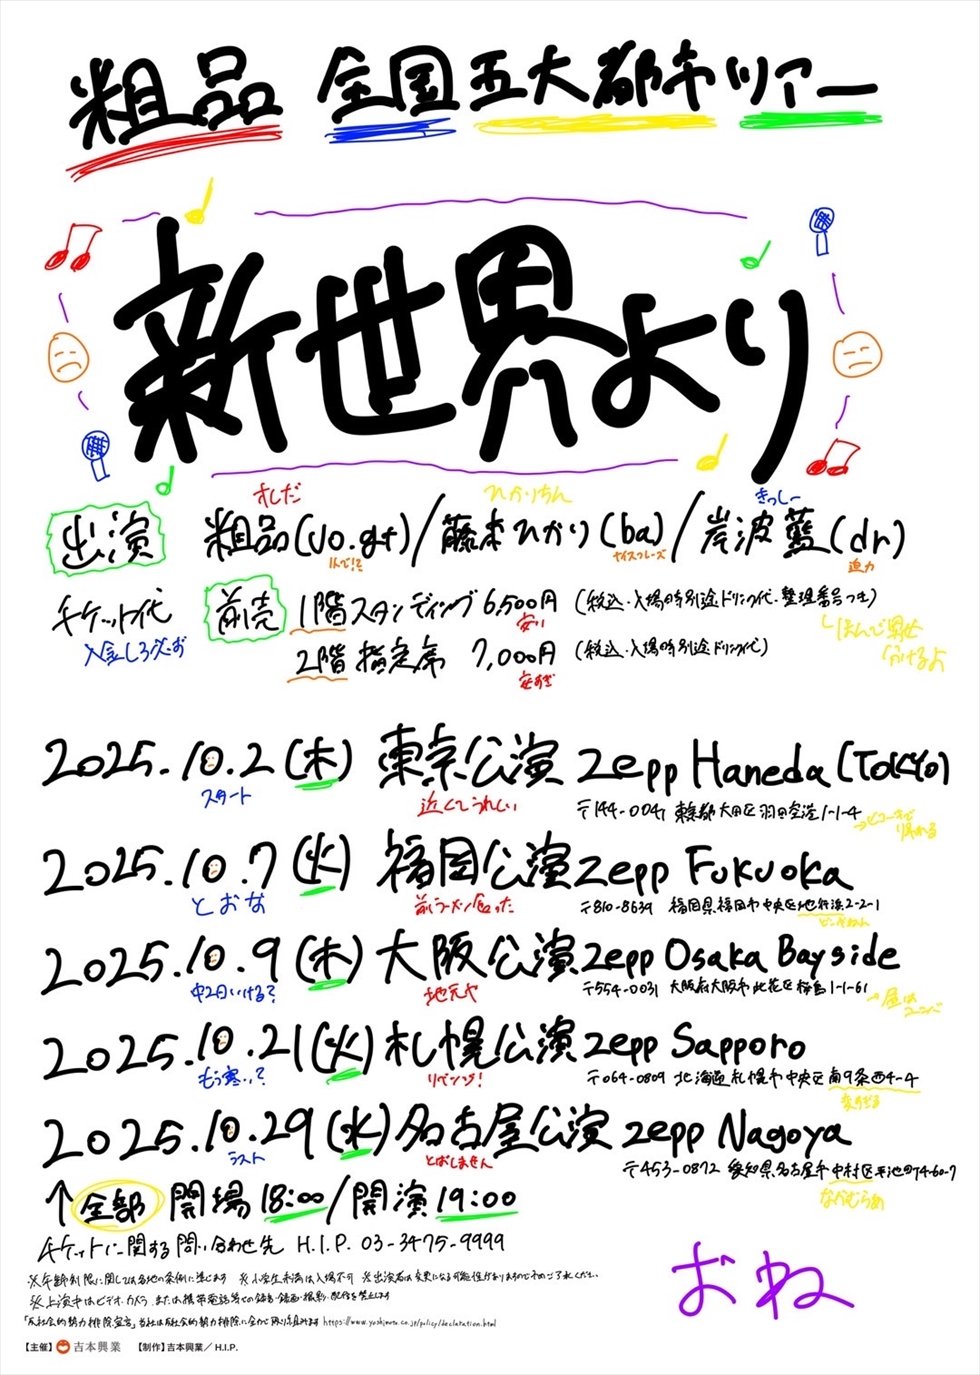 粗品 全国五大都市ツアー
新世界より
そしだ ひかりちん きっしー
出演 粗品(vo.gt)/藤本ひかり(ba)/岸波藍(dr)
ナイスフレーズ 迫力
チケット代 前売 1階スタンディング 6,500円 (税込・入場時別途ドリンク代・整理番号つき)
入金しろ必ず 安い
2階 指定席 7,000円 (税込・入場時別途ドリンク代)
安すぎ
2025.10.2(木) 東京公演 Zepp Haneda (TOKYO)
スタート 近くてうれしい 〒144-0041 東京都大田区羽田空港1-1-4
2025.10.7(火) 福岡公演 Zepp Fukuoka
とおな 前ラーメン食った 〒810-8639 福岡県福岡市中央区地行浜2-2-1
2025.10.9(木) 大阪公演 Zepp Osaka Bayside
中2日いける? 地元や 〒554-0031 大阪府大阪市此花区桜島1-1-61
2025.10.21(火) 札幌公演 Zepp Sapporo
もう寒い? リベンジ! 〒064-0809 北海道札幌市中央区南9条西4-4
2025.10.29(水) 名古屋公演 Zepp Nagoya
ラスト とばしません 〒453-0872 愛知県名古屋市中村区平池町4-60-7
なかむらぁ
↑全部 開場18:00/開演19:00
チケットに関する問い合わせ先 H.I.P. 03-3475-9999
※年齢制限に関しては各地の条例に準じます ※小学生未満は入場不可 ※出演者は変更になる可能性がありますので予めご了承ください。
※上演中はビデオ・カメラ、または携帯電話等での録音・録画・撮影・配信を禁止します
「反社会的勢力排除宣言」当社は反社会的勢力排除に全力で取り組みます https://www.yoshimoto.co.jp/policy/declaration.html
おね
【主催】吉本興業 【制作】吉本興業/H.I.P.